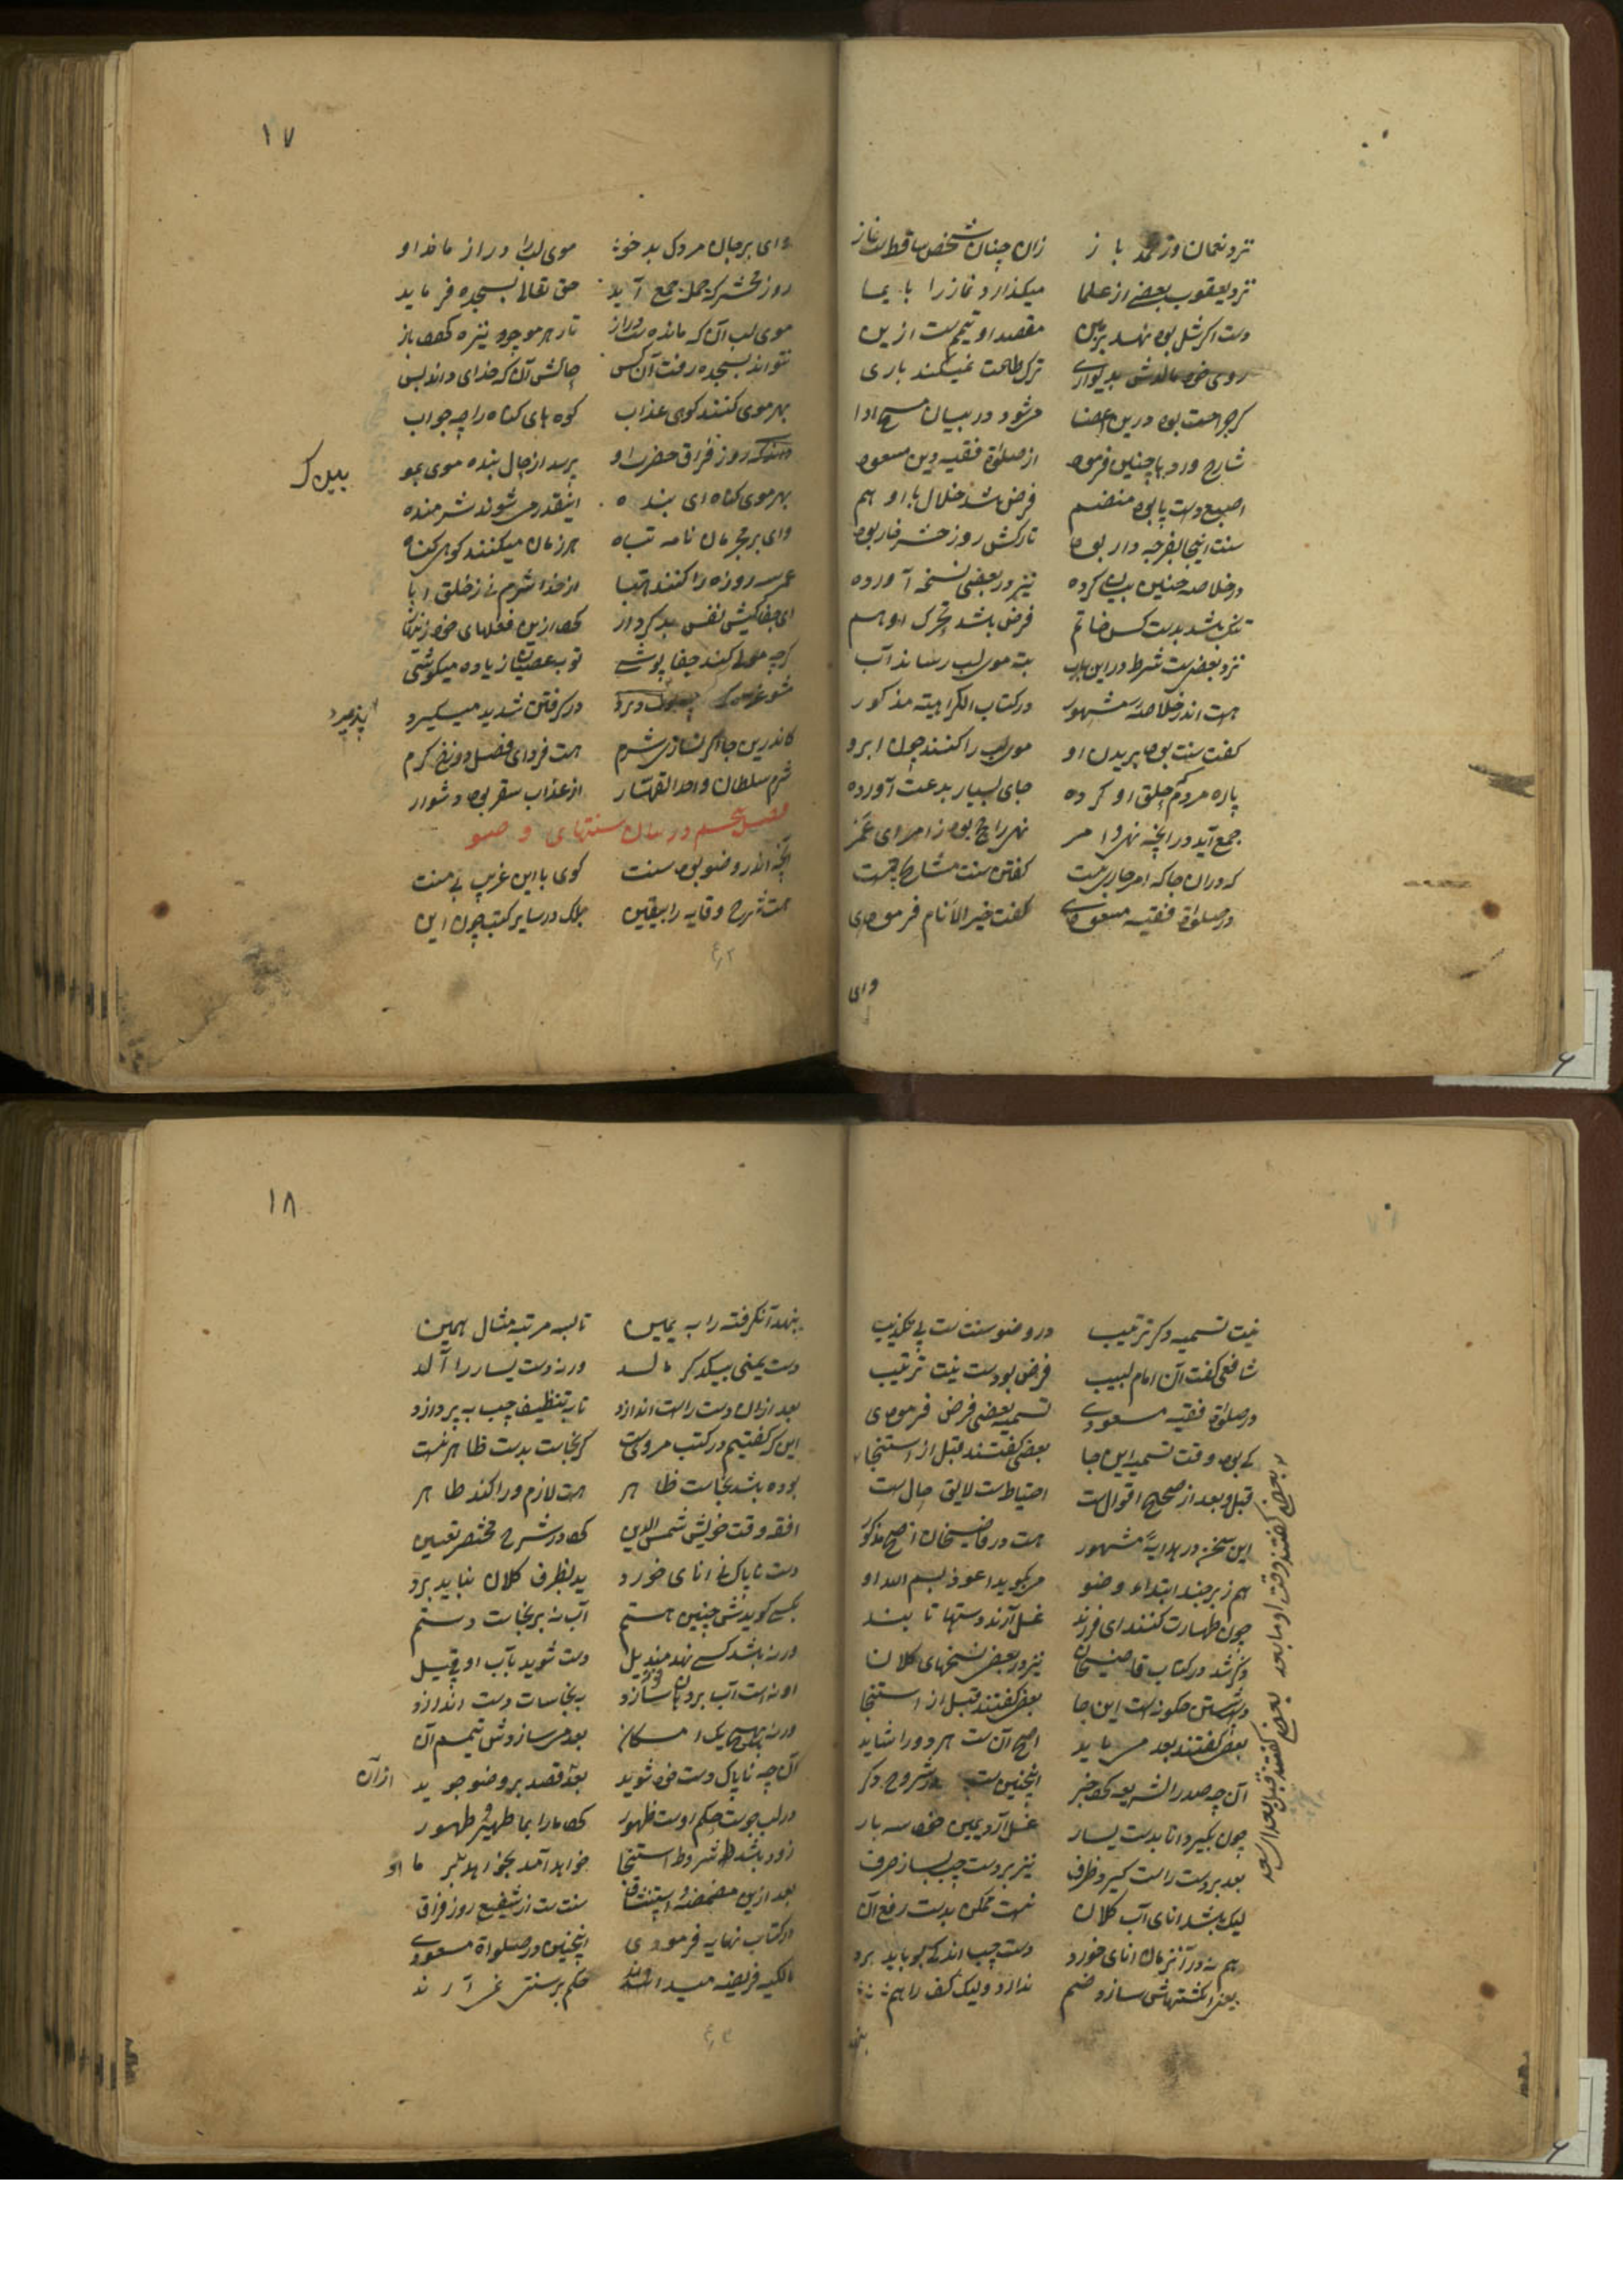 نزد نعمان و نزد محمد باز زان چنان شخص ساقط است نماز
نزد یعقوب بعضی از علما میکذارد نماز را با یما
دست اکر شل بود نهد بزمین مقصد او تیمم ست ازین
روی خود مالدش بدیواری ترک طاعت نمیکند باری
کر جراحت بود درین اعضا میشود در بیان مسح ادا
شارح ورد با چنین فرمود از صلوة فقیه دین مسعود
اصبع دست پا بود منضم فرض شد خلال با او هم
سنت اینجا بفرجه دار بود تارکش روز حشر خار بود
در خلاصه چنین بیان کرده نیز در بعضی نسخه آورده
تنک باشد بدست کس خاتم فرض باشد تحرک او هم
نزد بعضی ست شرط در این باب به موی لب رساند آب
هست اندر خلاصه مشهور در کتاب الکراهیته مذکور
کفت سنت بود بریدن او موی لب را کنند چون ابرو
پاره مردم حلق او کرده جای بسیار بدعت آورده
جمع آید در انچه نهی و امر نهی راجح بود ز امر ای عمز
که دران جا که امر جاری ست کفتن سنت مشایخ چیست
در صلوة فقیه مسعودی کفت خیر الانام فرمودی
وای
۱۷
وای بر حال مردک بد خو موی لب را دراز ماند او
روز محشر که جمله جمع آید حق تعالی بسجده فر ماید
موی لب آن که مانده است دراز تار هر مو چو نیزه کردد باز
نتواند بسجده رفت آن کس حالش آن که خدای داند بس
بهر موی کنند کوی عذاب کوه های کناه را چه جواب
روز فراق حضرت او پرسد از حال بنده موی بمو
بهر موی کناه ای بنده اینقدر می شوند شرمنده
وای بر مجرمان نامه تباه هر زمان میکنند کوی کناه
عمر سه روزه را کنند هبا از خدا شرم نی ز خلق ابا
ای جفا کیشی نفس بد کردار کرد ازین فعلهای خود
کرچه مولی کند جفا پوشی تو بعصیان زیاده میکوشی
در کرفتن شدید میکیرد
کاندرین جا اکر نسازی شرم هست فردای فصل دوزخ کرم
شرم سلطان واحد القهار از عذاب سقر بود دشوار
فصل پنجم در بیان سنتهای وضو
انچه اندر وضو بود سنت کوی با این غریب بی منت
هست شرح وقایه را بیقین بلک در سایر کتب چون این
۱۸
نیت تسمیه و کر ترتیب در وضو سنت ست بی تکذیب
شافعی کفت آن امام لبیب فرض بودست نیت ترتیب
در صلوة فقیه مسعودی تسمیه بعضی فرض فرمودی
کی بود وقت تسمیه این جا بعضی کفتند قبل از استنجا
قبل و بعد از صحیح اقوال ست احتیاط ست لایق حال ست
این سخن در هدایه مشهور هست در قاضیخان اصح مذکور
هم ز بر چند ابتداء وضو می بکوید اعوذ بسم الله او
چون طهارت کنند ای فرزند غسل آرند دستها تا بند
ذکر شد در کتاب قاضیخان نیز در بعضی نسخهای کلان
دست شستن چکونه است این جا بعضی کفتند قبل از استنجا
بعضی کفتند بعد می باید اصح آن ست هر دو را شاید
آن چه صدر الشریعه کرد خبر اینچنین ست در شروح دکر
چون بکیرد انا بدست یسار غسل آرد یمین خود سه بار
بعد بر دست راست کیرد ظرف نیز بر دست چپ بسازد صرف
لیک باشد انای آب کلان نیست ممکن بدست رفع آن
هم نه در آنزمان انای خورد دست چپ اندکی بباید برد
یعنی انکشتهاش سازد ضم ندارد ولیک کف را هم
بعضی کفتند وقت او ما بعد بعضی کفتند قبل بعد از سعد
بنهد آنکرفته را به یمین تا بسه مرتبه مثال همین
دست یمنی بیکدکر مالد ورنه دست یسار را آلد
بعد ازان دست راست اندازد تا به تنظیف چپ به پردازد
این که کفتیم در کتب مروی ست کر نجاست بدست ظاهر نیست
بوده باشد نجاست ظاهر هست لازم ورا کند طاهر
افقه وقت خویش شمس الدین کرد در شرح مختصر تعیین
دست ناپاک نی انای خورد ید بظرف کلان نباید برد
بکسی کویدش چنین هستم آب نه بر نجاست دستم
ورنه باشد کسی نهد مندیل دست شوید بآب او بی قیل
او نه است آب بر دهان سازد به نجاسات دست اندازد
ورنه بهیچ یک امکان بعد می سازدش تیمم آن
آن چه ناپاک دست خود شوید بعد قصد بر وضو جوید از آن
در لب جوست حکم اوست ظهور کرد ما را بما طهیر طهور
زود باشد شروط استنجا خواهد آمد بخواهد
بعد ازین مضمضه و استنشاق سنت ست از شفیع روز فراق
در کتاب نهایه فرمودی اینچنین در صلواة مسعودی
مالکیه فریضه میدانند حکم بر سنتی نمی آرند